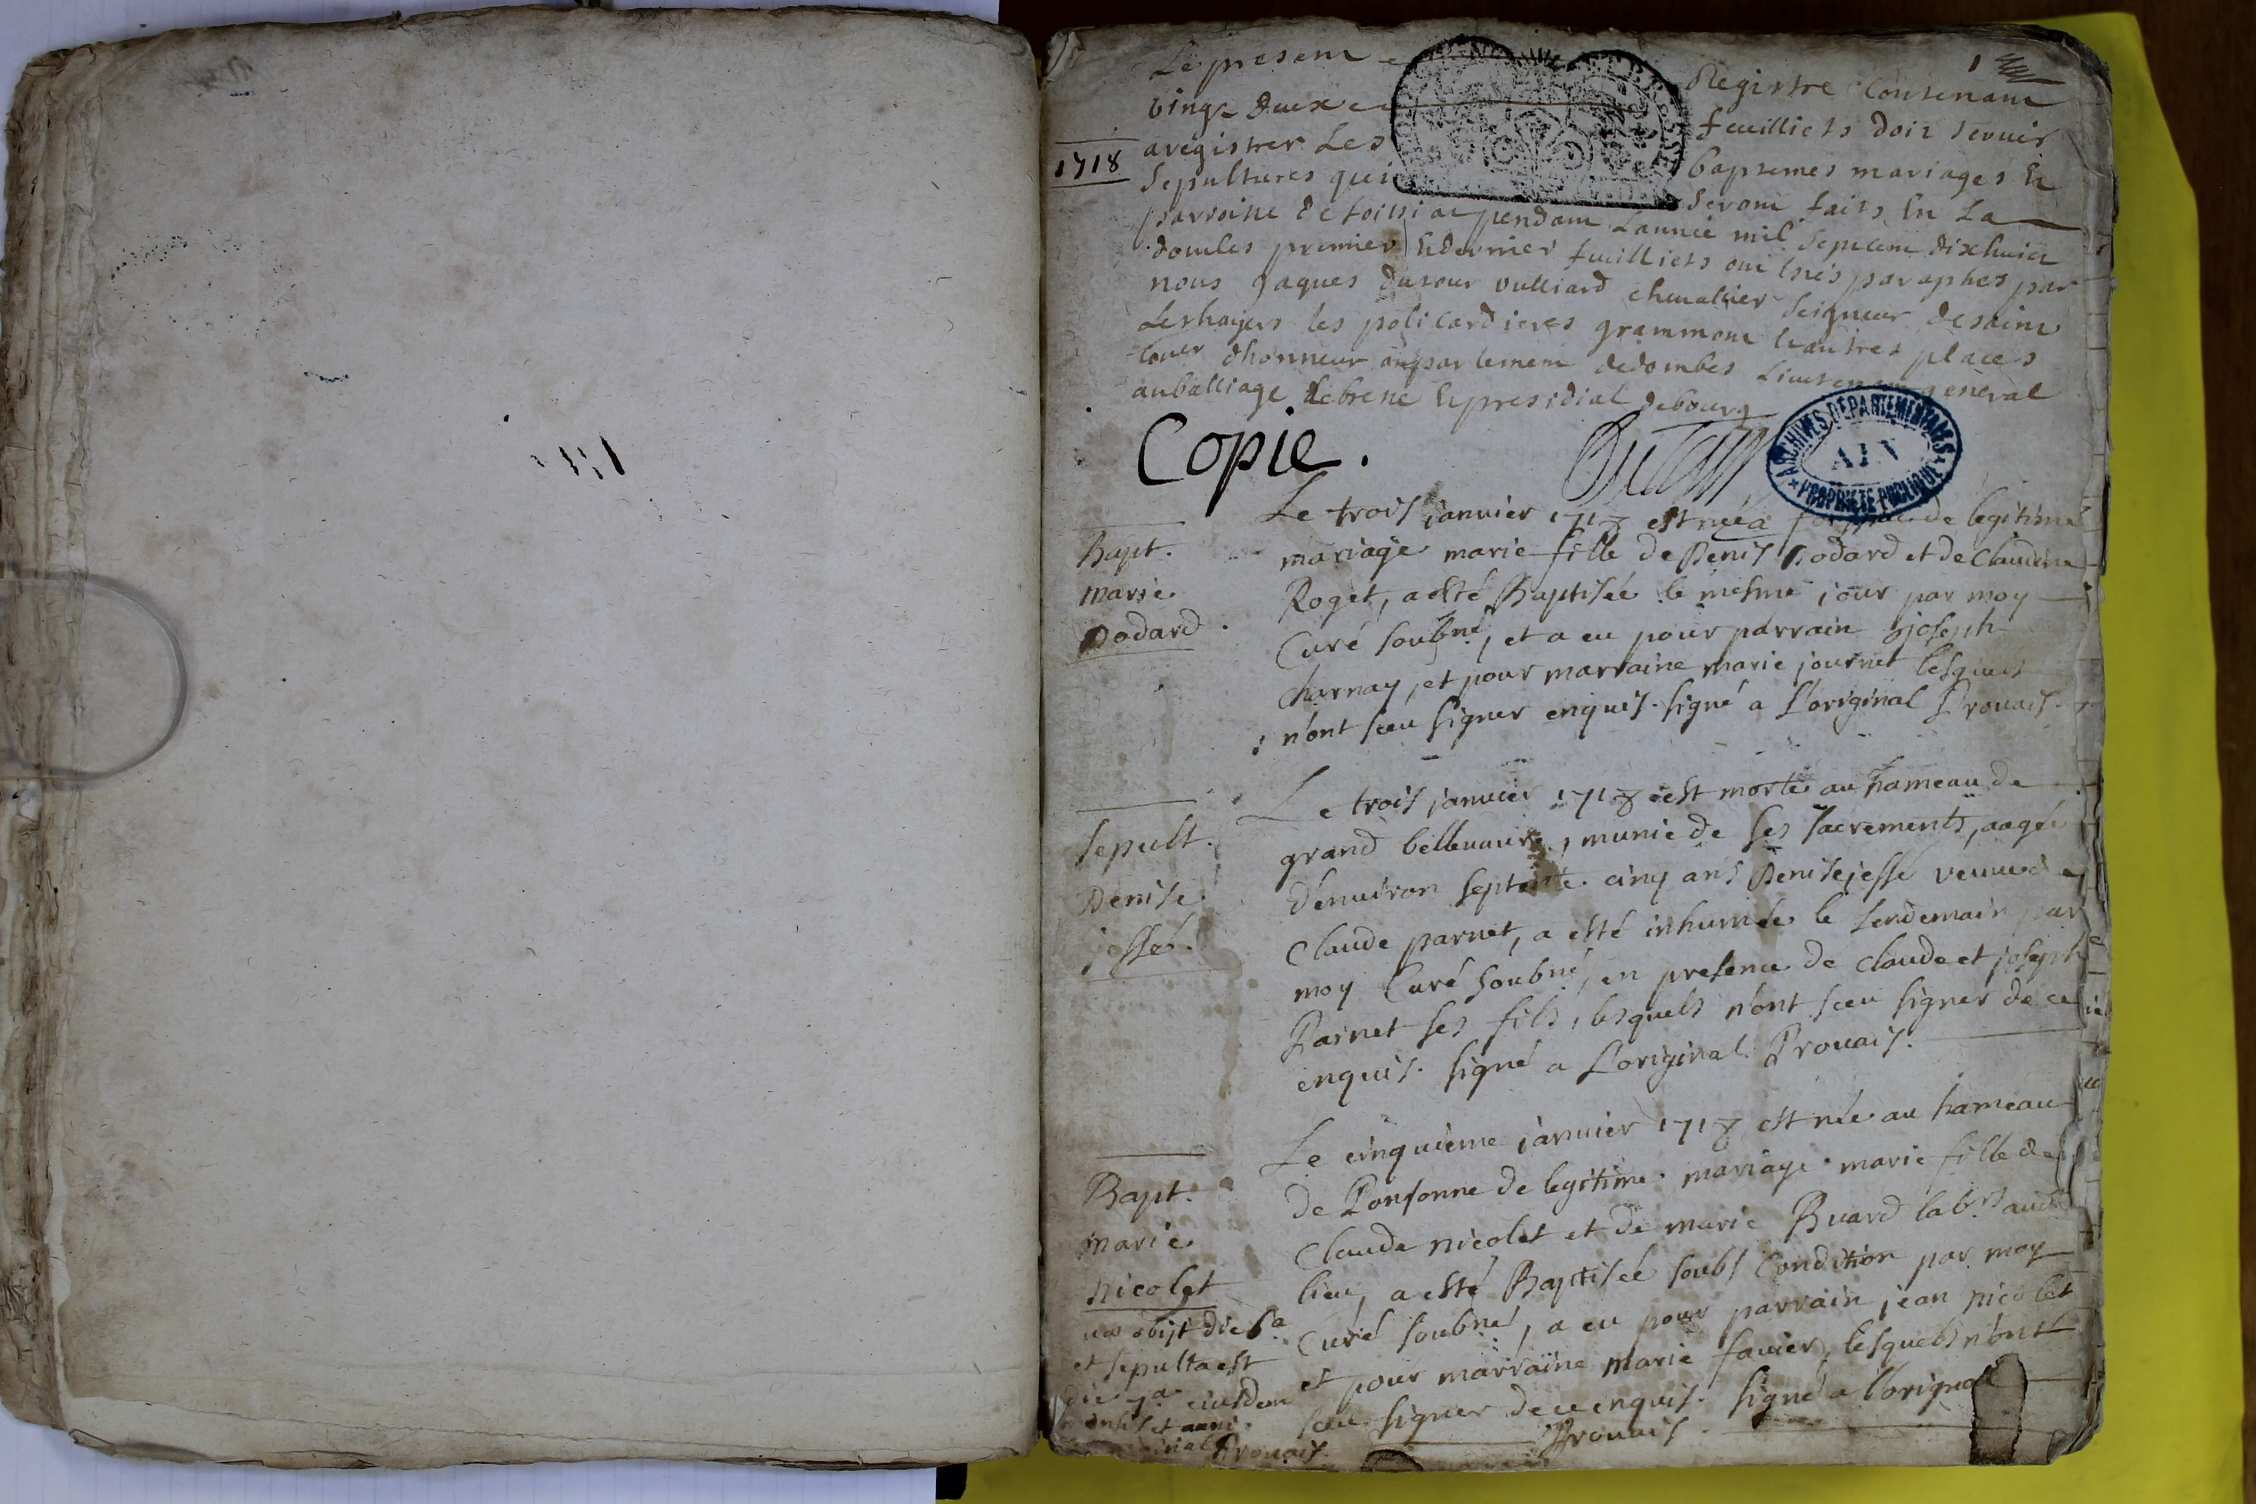 1
Le present Registre Contenant
vingt deux feuilliets doit servir
aregistrer Les baptemes mariages Et
1718
Sepultures qui seront faits En La
parroisse de foissiat pendant Lannée mil septcent dixhuict
dont les premier Et dernier feuilliets ont Estés paraphes par
nous Jaques dutour vulliard chevallier Seigneur de saint
les policardieres grammont Et autres places
dhonneur au parlement de dombes Lieutenant general
au balliage de bresse Et presidial de bourg
Copie.
ARCHIVES DÉPARTEMENTALES
AIN
PROPRIÉTÉ PUBLIQUE
Bapt.
Marie
Dodard.
Le trois janvier 1718 est née a de legitime
mariage marie fille de Denis Dodard et de Claudine
Roget, a esté Baptisée le mesme jour par moy
Curé soubné, et a eu pour parrain joseph
charnay, et pour marraine marie journet lesquels
n'ont sceu signer enquis. signé a L'original Prouais.
Sepult.
Denise
jessé.
Le trois janvier 1718 est morte au hameau de
grand bellevavre, munie de ses sacrements, aagée
d'environ septante cinq ans Denise jessé veuve de
Claude parnet, a esté inhumée le lendemain par
moy Curé soubné, en presence de claude et joseph
Parnet ses fils, lesquels n'ont sceu signer de ce
enquis. signé a L'original Prouais.
Bapt.
Marie
Nicolet
obijt die 6a
et sepulta est
die 7a eiusdem
mensis et anni.
Prouais.
Le cinquieme janvier 1718 est née au hameau
de Ponsonne de legitime mariage marie fille de
Claude nicolet et de marie Buard labrs aud
lieu, a esté Baptisée soubs Condition par moy
Curé soubné, a eu pour parrain jean nicolet
et pour marraine Marie favier, lesquels n'ont
sceu signer de ce enquis. signé a l'original
Prouais.